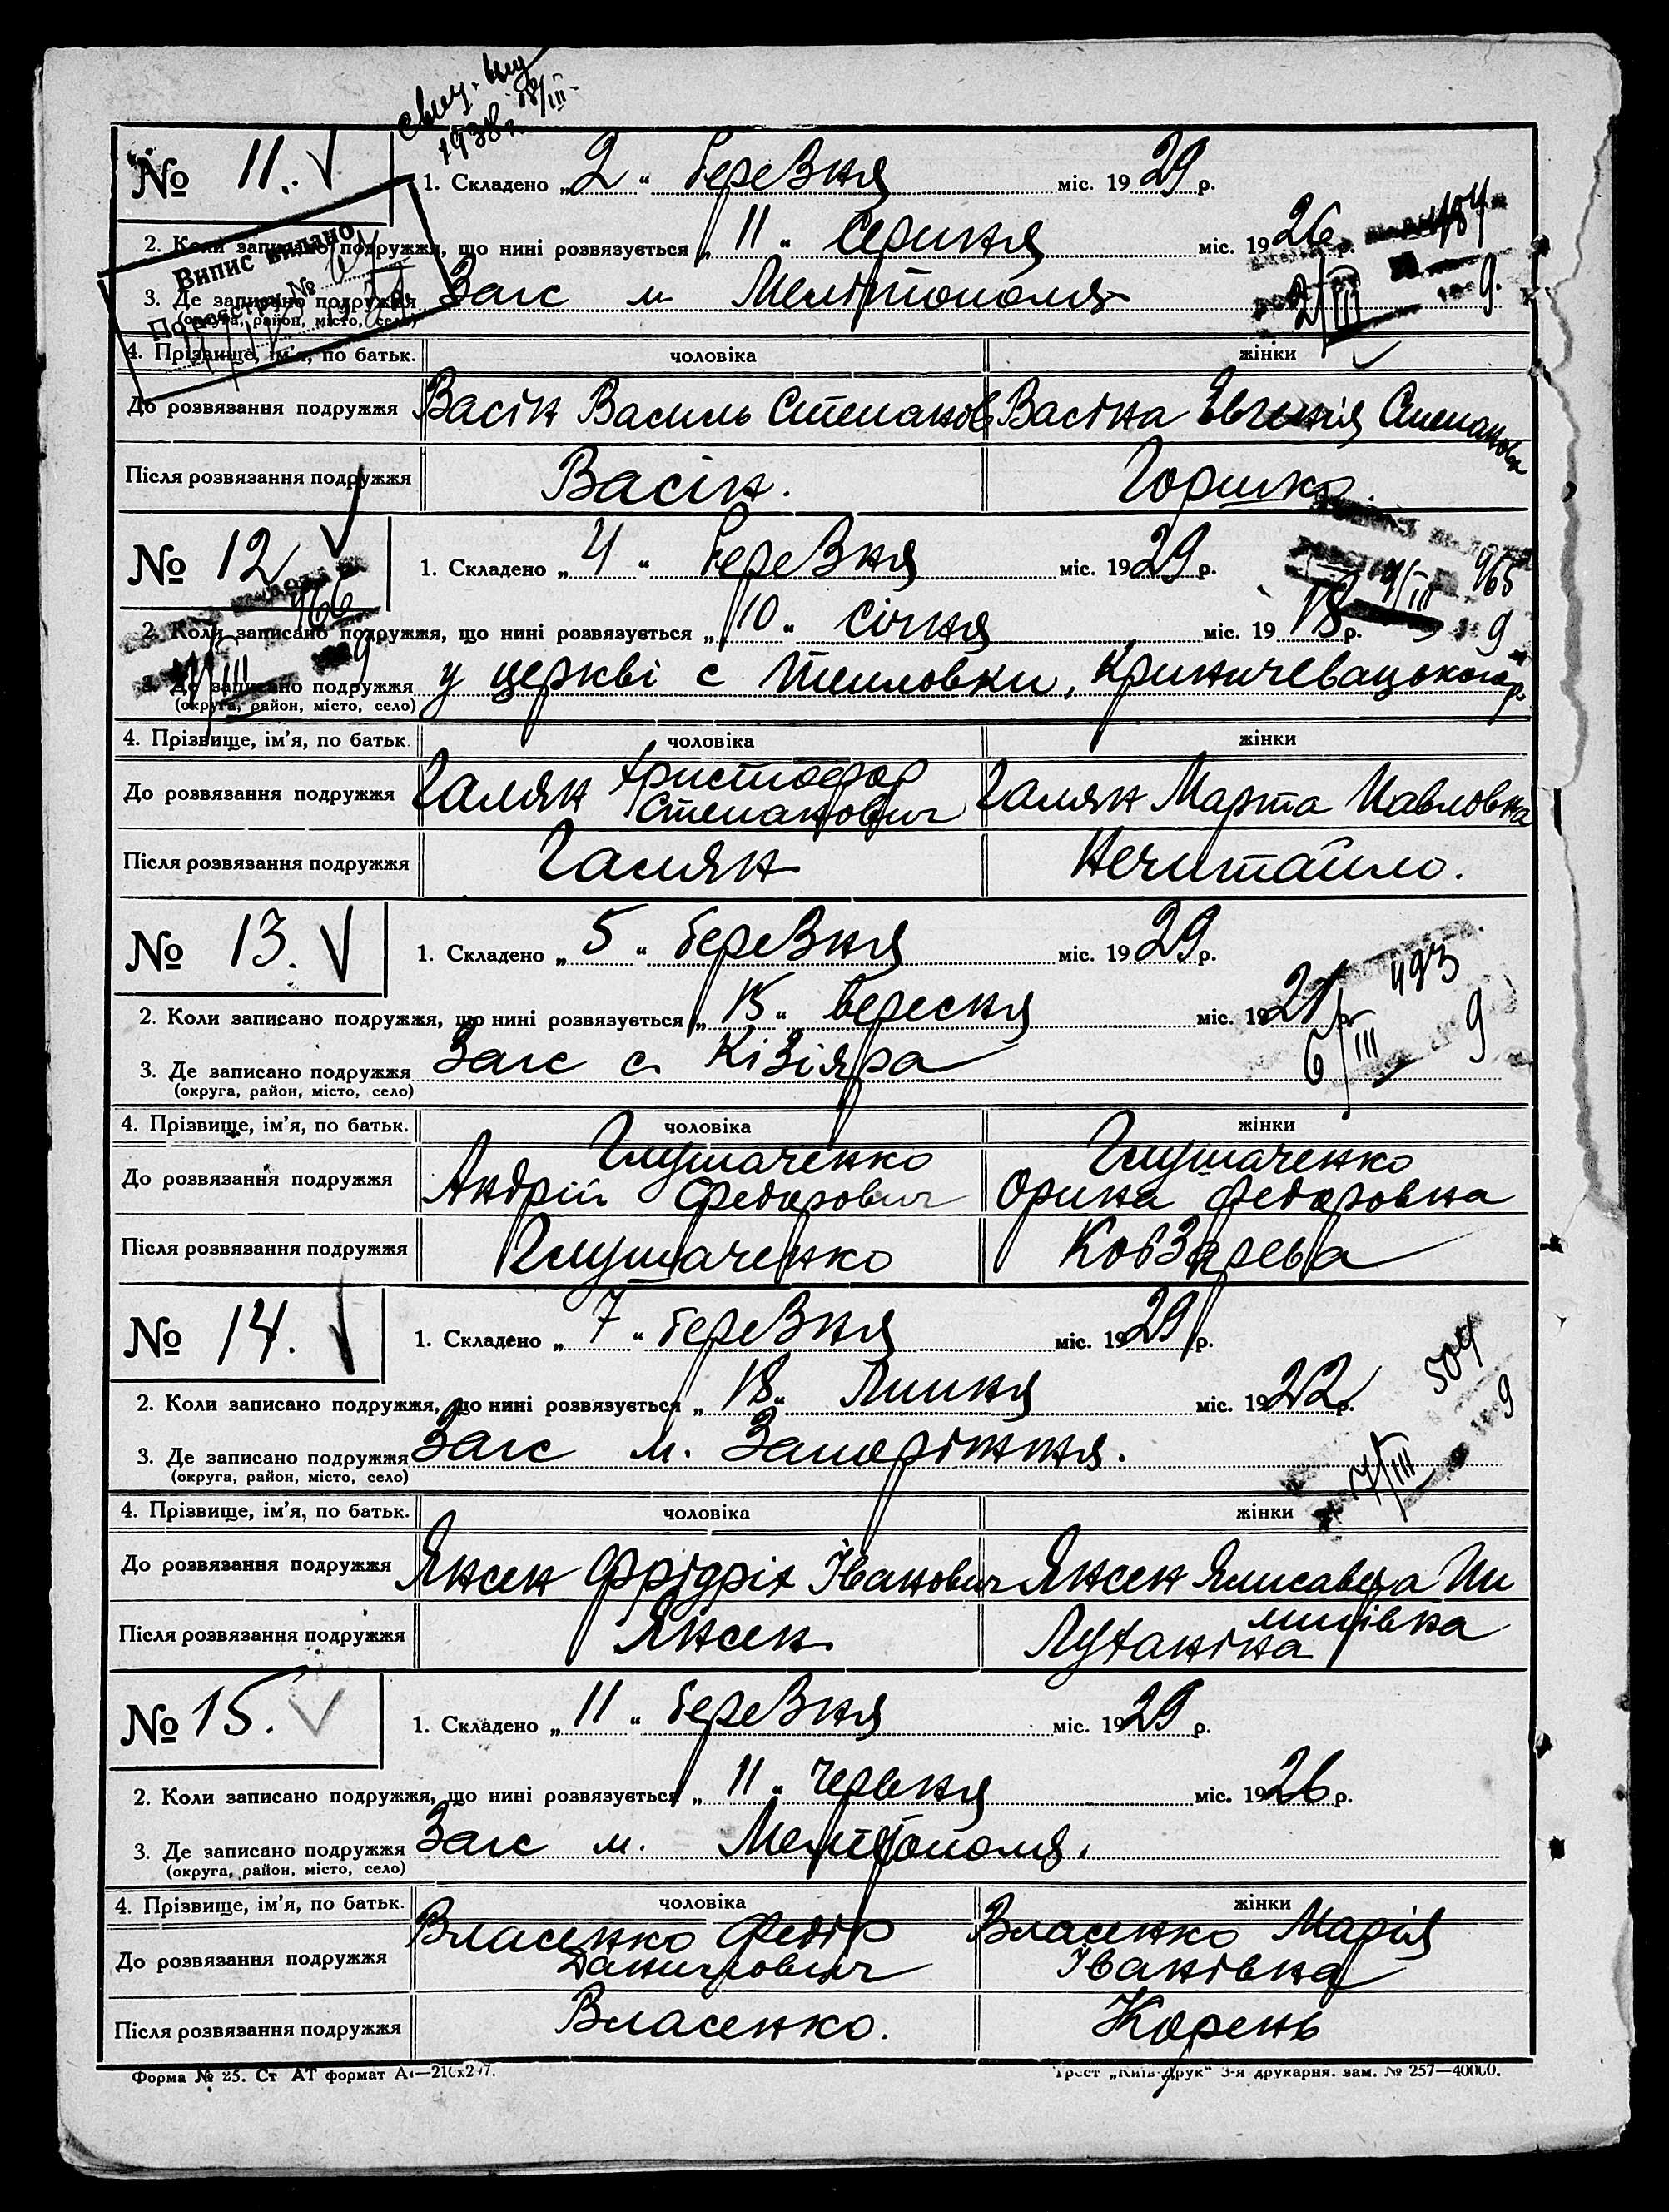 свид. выд
1938 г. 18/III
№ 11. V
1. Складено „2“ березня міс. 1929 р.
2. Коли записано подружжя, що нині розвязується „11“ Серпня міс. 1926 р.
Випис видано
По реєстру №
3. Де записано подружжя Загс м Мелітополя
(округа, район, місто, село)
2/III 9
4. Прізвище, ім’я, по батьк. чоловіка жінки
До розвязання подружжя Васік Василь Степанов Васіка Євгенія Степановн
Після розвязання подружжя Васік. Горшко
№ 12 V
1. Складено „4“ березня міс. 1929 р.
965
466
2. Коли записано подружжя, що нині розвязується „10“ січня міс. 1918 р.
9
3. Де записано подружжя у церкві с Тепловки, Криничевацького р.
(округа, район, місто, село)
4. Прізвище, ім’я, по батьк. чоловіка жінки
До розвязання подружжя Галян Христофор Степанович Галян Марта Павловна
Після розвязання подружжя Галян Нечитайло.
№ 13. V
1. Складено „5“ березня міс. 1929 р.
493
2. Коли записано подружжя, що нині розвязується „15“ вересня міс. 1921 р.
3. Де записано подружжя Загс с. Кізіяра
(округа, район, місто, село)
6/III 9
4. Прізвище, ім’я, по батьк. чоловіка жінки
До розвязання подружжя Глушаченко Андрій Федорович Глушаченко Орина Федоровна
Після розвязання подружжя Глушаченко Кобзарева
№ 14. V
1. Складено „7“ березня міс. 1929 р.
504
2. Коли записано подружжя, що нині розвязується „18“ Липня міс. 1922 р.
9
3. Де записано подружжя Загс м. Запоріжжя.
(округа, район, місто, село)
7/III
4. Прізвище, ім’я, по батьк. чоловіка жінки
До розвязання подружжя Янсен Фрідріх Іванович Янсен Ялисавета Пи
липівна
Після розвязання подружжя Янсен Лутаніна
№ 15. V
1. Складено „11“ березня міс. 1929 р.
2. Коли записано подружжя, що нині розвязується „11“ червня міс. 1926 р.
3. Де записано подружжя Загс м. Мелітополя.
(округа, район, місто, село)
4. Прізвище, ім’я, по батьк. чоловіка жінки
До розвязання подружжя Власенко Федір Данилович Власенко Марія Іванівна
Після розвязання подружжя Власенко. Корень
Форма № 25. Ст АТ формат А4—210х297. Трест „Київ-Друк“ 3-я друкарня. зам. № 257—40000.